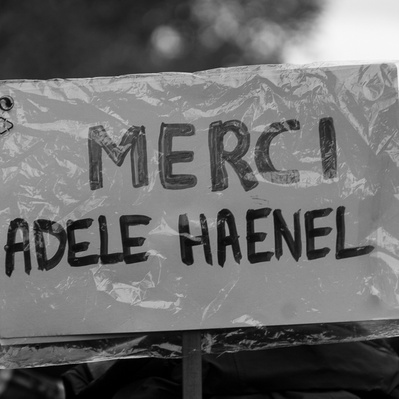 MERCI
ADELE HAENEL